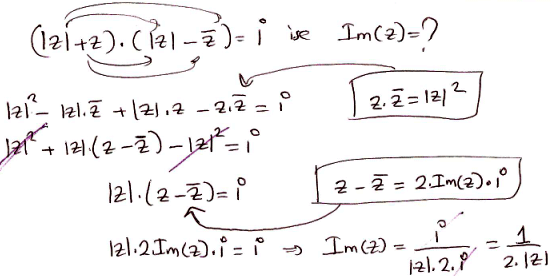 (|z|+z).(|z|-z̄)=i ise Im(z)=?
|z|²-|z|.z̄+|z|.z-z.z̄=i
z.z̄=|z|²
|z|²+|z|.(z-z̄)-|z|²=i
|z|.(z-z̄)=i
z-z̄=2.Im(z).i
|z|.2Im(z).i=i ⇒ Im(z)=i/(|z|.2.i)=1/(2.|z|)